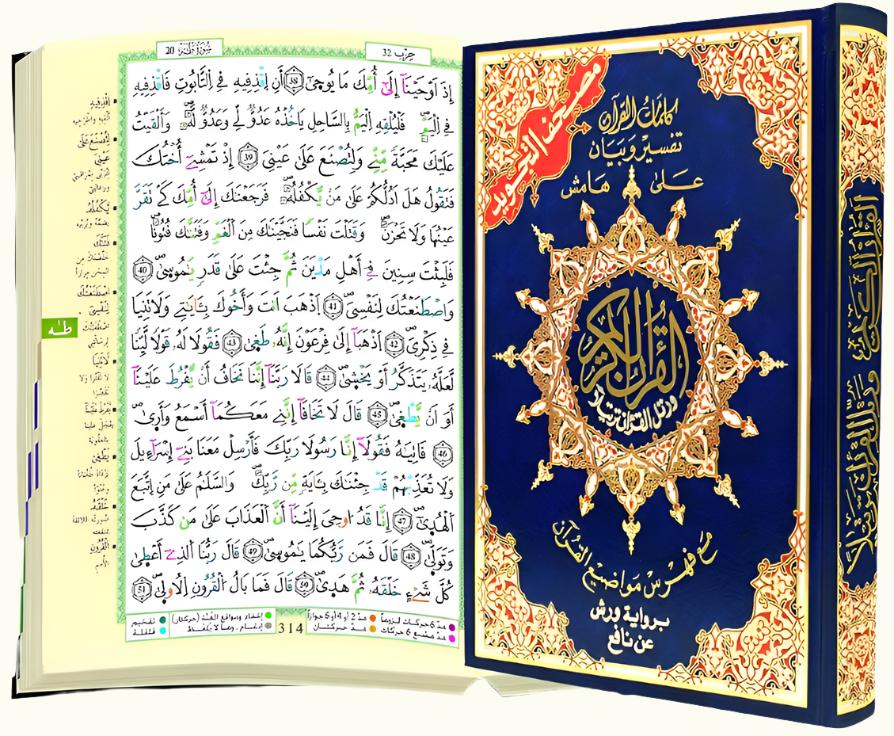 مصحف التجويد
كلمات القرآن
تفسير وبيان
على هامش
القرآن الكريم
ورتل القرآن ترتيلا
مع فهرس مواضيع القرآن
برواية ورش
عن نافع
القرآن الكريم ورتل القرآن ترتيلا
حزب 32
سورة طه 20
إِذَ اَوْحَيْنَآ إِلَىٰٓ أُمِّكَ مَا يُوحَىٰٓ 38 أَنِ اِقْذِفِيهِ فِي اِلتَّابُوتِ فَاقْذِفِيهِ
فِي اِلْيَمِّ فَلْيُلْقِهِ اِلْيَمُّ بِالسَّاحِلِ يَاخُذْهُ عَدُوٌّ لِّي وَعَدُوٌّ لَّهُۥ وَأَلْقَيْتُ
عَلَيْكَ مَحَبَّةً مِّنِّي وَلِتُصْنَعَ عَلَىٰ عَيْنِيَ 39 إِذْ تَمْشِےٓ أُخْتُكَ
فَتَقُولُ هَلَ اَدُلُّكُمْ عَلَىٰ مَنْ يَّكْفُلُهُۥ فَرَجَعْنَٰكَ إِلَىٰٓ أُمِّكَ كَےْ تَقَرَّ
عَيْنُهَا وَلَا تَحْزَنَ وَقَتَلْتَ نَفْسًا فَنَجَّيْنَٰكَ مِنَ اَلْغَمِّ وَفَتَنَّٰكَ فُتُونًا
فَلَبِثْتَ سِنِينَ فِےٓ أَهْلِ مَدْيَنَ ثُمَّ جِئْتَ عَلَىٰ قَدَرٍ يَٰمُوسَىٰ 40
وَاصْطَنَعْتُكَ لِنَفْسِيَ 41 اَذْهَبَ اَنتَ وَأَخُوكَ بِـَٔايَٰتِي وَلَا تَنِيَا
فِي ذِكْرِيَ 42 اَذْهَبَآ إِلَىٰ فِرْعَوْنَ إِنَّهُۥ طَغَىٰ 43 فَقُولَا لَهُۥ قَوْلًا لَّيِّنًا
لَّعَلَّهُۥ يَتَذَكَّرُ أَوْ يَخْشَىٰ 44 قَالَا رَبَّنَآ إِنَّنَا نَخَافُ أَنْ يَّفْرُطَ عَلَيْنَآ
أَوَ اَنْ يَّطْغَىٰ 45 قَالَ لَا تَخَافَآ إِنَّنِي مَعَكُمَآ أَسْمَعُ وَأَرَىٰ
46 فَاتِيَٰهُ فَقُولَآ إِنَّا رَسُولَا رَبِّكَ فَأَرْسِلْ مَعَنَا بَنِےٓ إِسْرَآءِيلَ
وَلَا تُعَذِّبْهُمْ قَدْ جِئْنَٰكَ بِـَٔايَةٍ مِّن رَّبِّكَ وَالسَّلَٰمُ عَلَىٰ مَنِ اِتَّبَعَ
اَلْهُدَىٰٓ 47 إِنَّا قَدُ ا۟وحِيَ إِلَيْنَآ أَنَّ اَلْعَذَابَ عَلَىٰ مَن كَذَّبَ
وَتَوَلَّىٰ 48 قَالَ فَمَن رَّبُّكُمَا يَٰمُوسَىٰ 49 قَالَ رَبُّنَا اَلذِےٓ أَعْطَىٰ
كُلَّ شَےْءٍ خَلْقَهُۥ ثُمَّ هَدَىٰ 50 قَالَ فَمَا بَالُ اُلْقُرُونِ اِلُاولَىٰ 51
طه
مدّ 6 حركات لزوماً
مدّ 2 أو 4 أو 6 جوازاً
مدّ مشبع 6 حركات
مدّ حركتان
إخفاء ومواقع الغنة (حركتان)
إدغام، وما لا يُلفظ
تفخيم
قلقلة
314